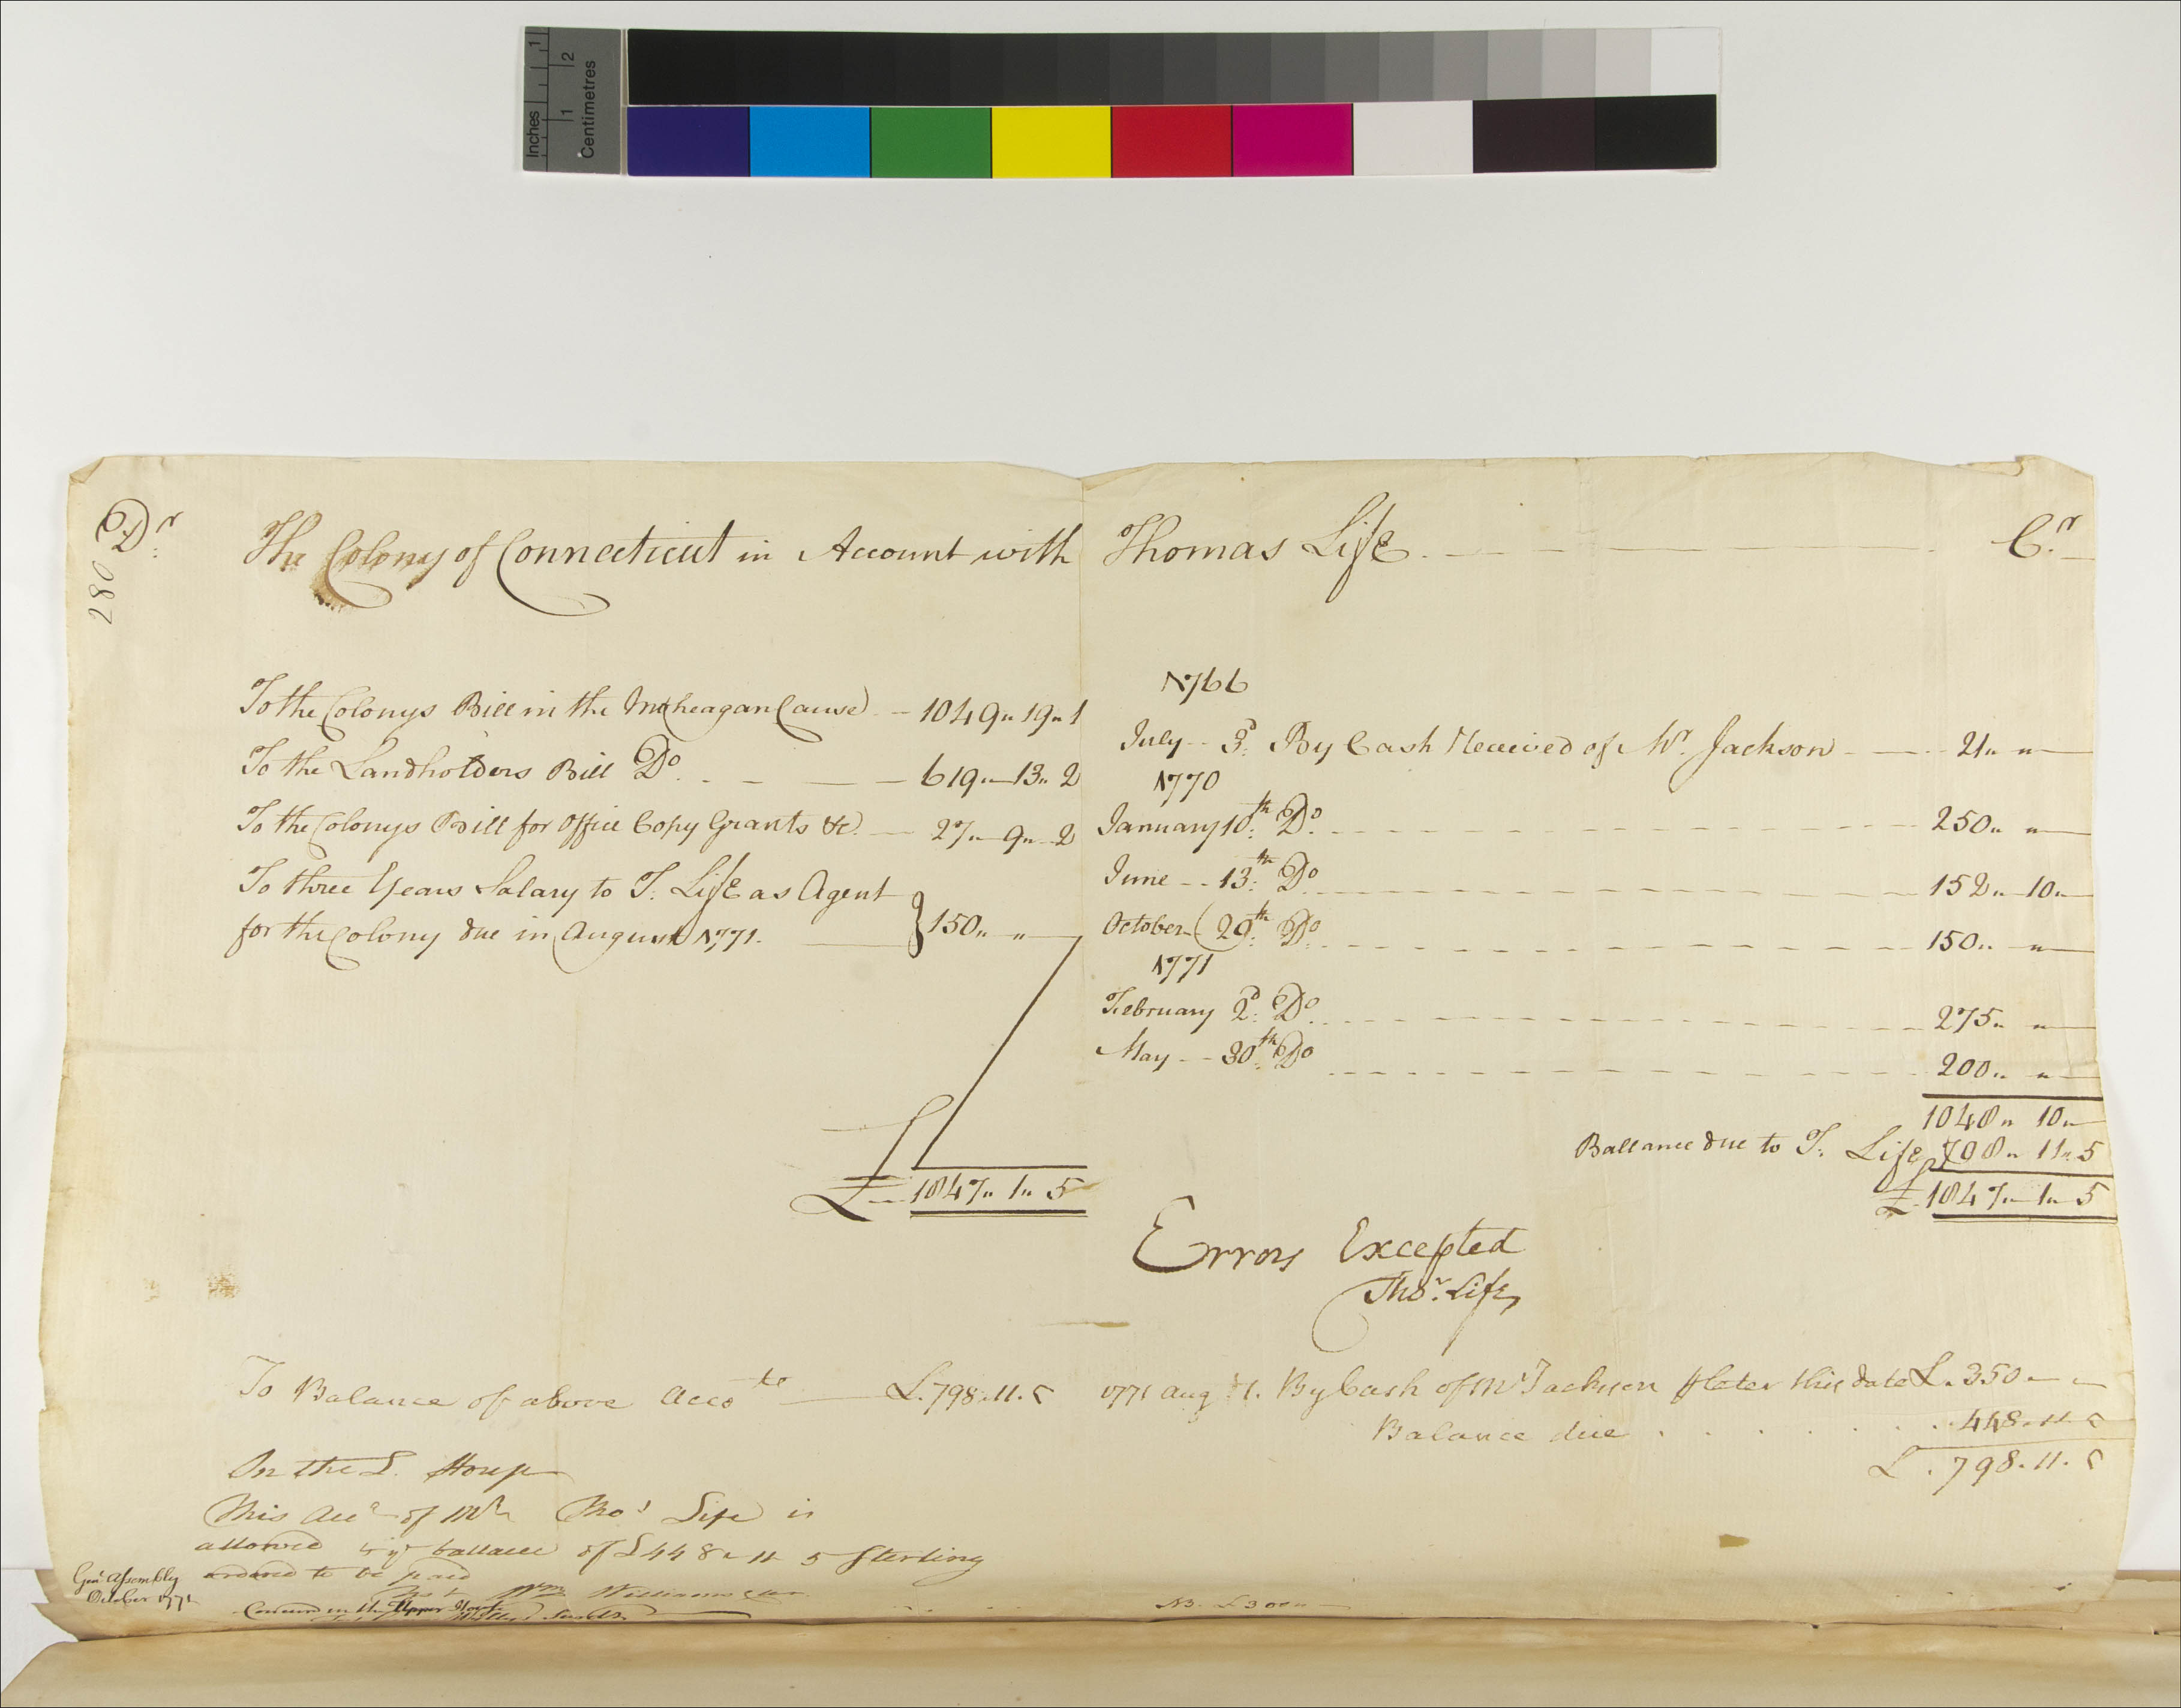 Inches 1
Centimetres 1 2
280
Dr. The Colony of Connecticut in Account with Thomas Life. Cr.
To the Colonys Bill in the Moheagan Cause 1049 " 19 " 1
To the Landholders Bill Do. 619 " 13 " 2
To the Colonys Bill for Office Copy Grants &c. 27 " 9 " 2
To three Years Salary to T: Life as Agent
for the Colony due in August 1771. 150 " "
£ 1847 " 1 " 5
1766
July 3d: By Cash Received of Mr. Jackson 21 " "
1770
January 10th: Do. 250 " "
June 13th: Do. 152 " 10 "
October 29th: Do. 150 " "
1771
February 2d: Do. 275 " "
May 30th: Do 200 " "
1048 " 10 "
Ballance due to T: Life 798 " 11 " 5
£ 1847 " 1 " 5
Errors Excepted
Thos. Life
To Balance of above Acco £.798.11.5
1771 Aug By Cash of Mr Jackson this date £.350
Balance due 448.11.5
£.798.11.5
In the L. House
This Acct of Mr Thos Life is
allowed & ye ballance of £448 " 11 " 5 Sterling
ordered to be paid
Test Wm Williams Clr
Genl. Assembly
October 1771
Concurd in the Upper House
NB. £300